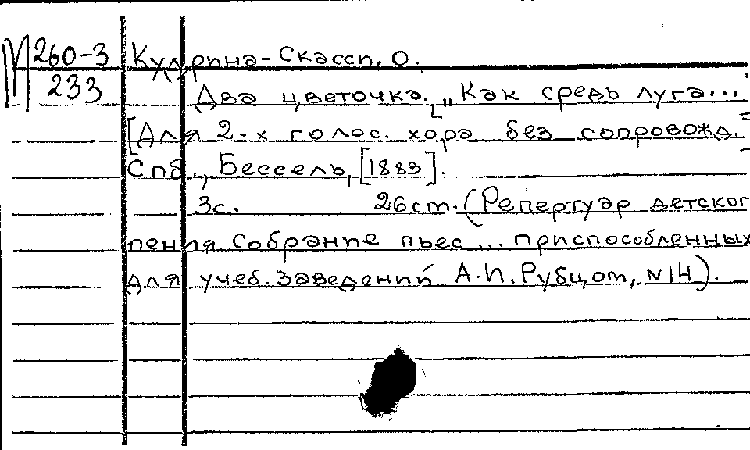 М 260-3 Кудрина-Скасси, О.
233 Два цветочка. „Как средь луга...
[Для 2-х голос. хора без сопровожд.
Спб., Бессель, [1883].
3с. 26ст. (Репертуар детског
пения Собрание пьес ... приспособленных
для учеб. заведений А.И. Рубцом, N 14).